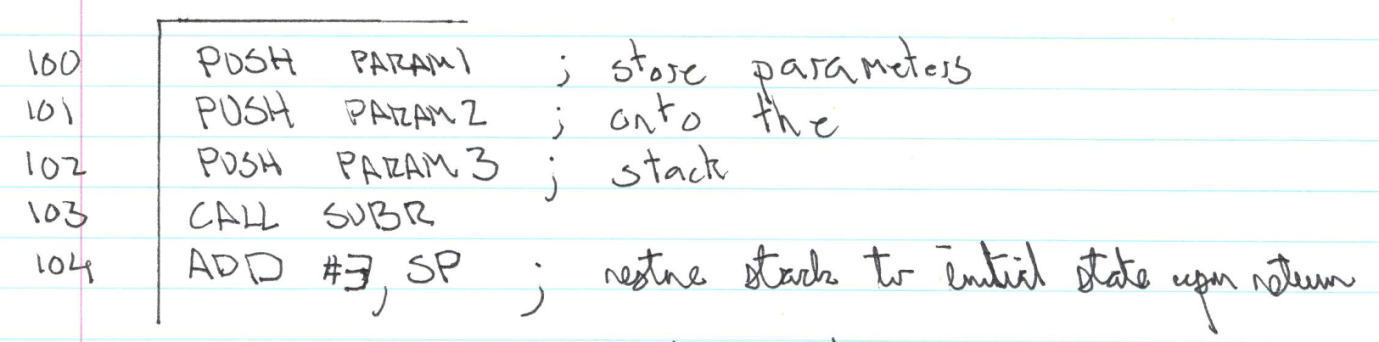 100 PUSH PARAM1 ; store parameters
101 PUSH PARAM2 ; onto the
102 PUSH PARAM3 ; stack
103 CALL SUBR
104 ADD #3, SP ; restore stack to initial state upon return